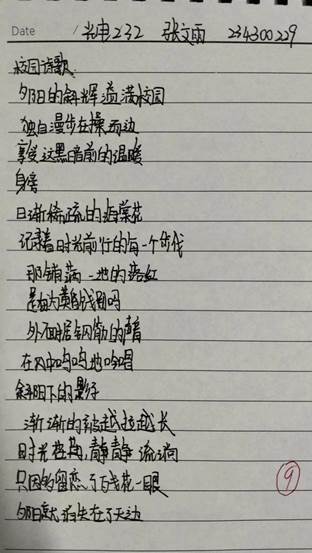 Date 光电232 张文雨 234300229
校园诗歌
夕阳的斜辉溢满校园
独自漫步在操场边
享受这黑暗前的温暖
身旁
日渐稀疏的海棠花
记录着时光前行的每一个步伐
那铺满一地的落红
是为黄昏饯别吗
外面锯钢筋的声音
在风中呜呜地吟唱
斜阳下的影子
渐渐的被越拉越长
时光在静静流淌
只因为留恋了花一眼
夕阳就消失在了天边
9